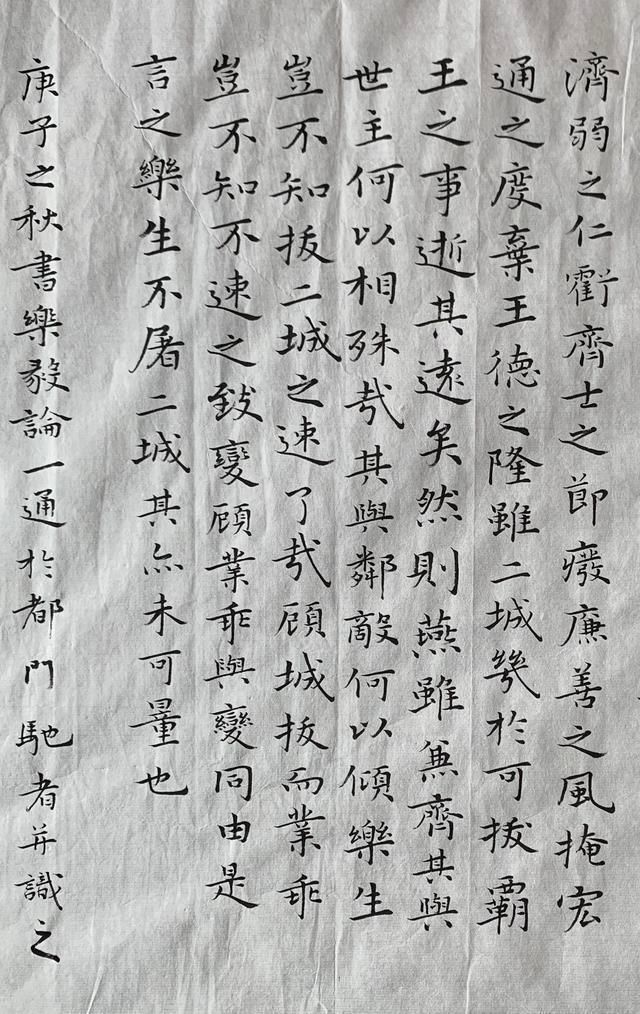 濟弱之仁虧齊士之節癈廉善之風掩宏
通之度棄王德之隆雖二城幾於可拔霸
王之事逝其遠矣然則燕雖兼齊其與
世主何以相殊哉其與鄰敵何以傾樂生
豈不知拔二城之速了哉顧城拔而業乖
豈不知不速之致變顧業乖與變同由是
言之樂生不屠二城其亦未可量也
庚子之秋書樂毅論一通於都門馳者并識之